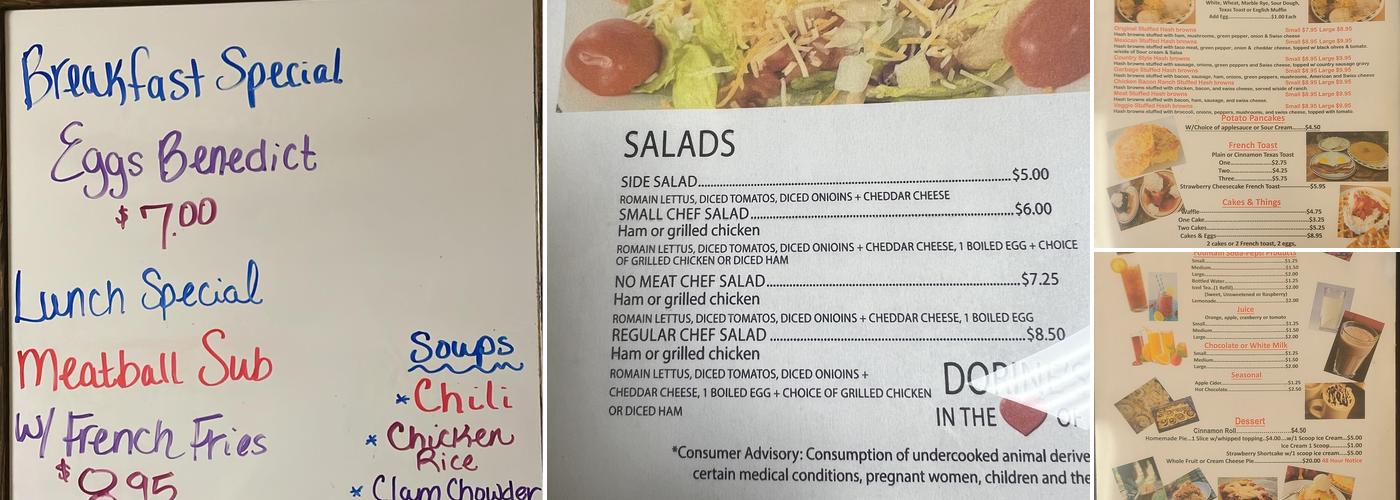 Breakfast Special
Eggs Benedict
$7.00
Lunch Special
Meatball Sub
w/ French Fries
$8.95
Soups
* Chili
* Chicken
Rice
* Clam Chowder
SALADS
SIDE SALAD $5.00
ROMAIN LETTUS, DICED TOMATOS, DICED ONIOINS + CHEDDAR CHEESE
SMALL CHEF SALAD $6.00
Ham or grilled chicken
ROMAIN LETTUS, DICED TOMATOS, DICED ONIOINS + CHEDDAR CHEESE, 1 BOILED EGG + CHOICE
OF GRILLED CHICKEN OR DICED HAM
NO MEAT CHEF SALAD $7.25
Ham or grilled chicken
ROMAIN LETTUS, DICED TOMATOS, DICED ONIOINS + CHEDDAR CHEESE, 1 BOILED EGG
REGULAR CHEF SALAD $8.50
Ham or grilled chicken
ROMAIN LETTUS, DICED TOMATOS, DICED ONIOINS +
CHEDDAR CHEESE, 1 BOILED EGG + CHOICE OF GRILLED CHICKEN
OR DICED HAM
IN THE
*Consumer Advisory: Consumption of undercooked animal derive
certain medical conditions, pregnant women, children and the
White, Wheat, Marble Rye, Sour Dough,
Texas Toast or English Muffin
Add Egg $1.00 Each
Original Stuffed Hash browns Small $7.95 Large $8.95
Hash browns stuffed with ham, mushrooms, green pepper, onion & Swiss cheese
Mexican Stuffed Hash browns Small $8.95 Large $9.95
Hash browns stuffed with taco meat, green pepper, onion & cheddar cheese, topped w/ black olives & tomato.
w/side of Sour cream & Salsa
Country Style Hash browns Small $8.95 Large $9.95
Hash browns stuffed with sausage, onions, green peppers and Swiss cheese, topped w/country sausage gravy
Garbage Stuffed Hash browns Small $8.95 Large $9.95
Hash browns stuffed with bacon, sausage, ham, onions, green peppers, mushrooms, American and Swiss cheese
Chicken Bacon Ranch Stuffed Hash browns Small $8.95 Large $9.95
Hash browns stuffed with chicken, bacon, and swiss cheese, served w/side of ranch.
Meat Stuffed Hash browns Small $8.95 Large $9.95
Hash browns stuffed with bacon, ham, sausage, and swiss cheese.
Veggie Stuffed Hash browns Small $8.95 Large $9.95
Hash browns stuffed with broccoli, onions, peppers, mushrooms, and swiss cheese, topped with tomato.
Potato Pancakes
W/Choice of applesauce or Sour Cream $4.50
French Toast
Plain or Cinnamon Texas Toast
One $2.75
Two $4.25
Three $5.75
Strawberry Cheesecake French Toast $5.95
Cakes & Things
Waffle $4.75
One Cake $3.25
Two Cakes $5.25
Cakes & Eggs $8.95
2 cakes or 2 French toast, 2 eggs,
Fountain Soda-Pepsi Products
Small $1.25
Medium $1.50
Large $2.00
Bottled Water $1.25
Iced Tea..(1 Refill) $2.00
(Sweet, Unsweetened or Raspberry)
Lemonade $2.00
Juice
Orange, apple, cranberry or tomato
Small $1.25
Medium $1.50
Large $2.00
Chocolate or White Milk
Small $1.25
Medium $1.50
Large $2.00
Seasonal
Apple Cider $1.25
Hot Chocolate $2.50
Dessert
Cinnamon Roll $4.50
Homemade Pie...1 Slice w/whipped topping..$4.00...w/1 Scoop Ice Cream...$5.00
Ice Cream 1 Scoop $1.00
Strawberry Shortcake w/1 scoop ice cream $5.00
Whole Fruit or Cream Cheese Pie $20.00 48 Hour Notice